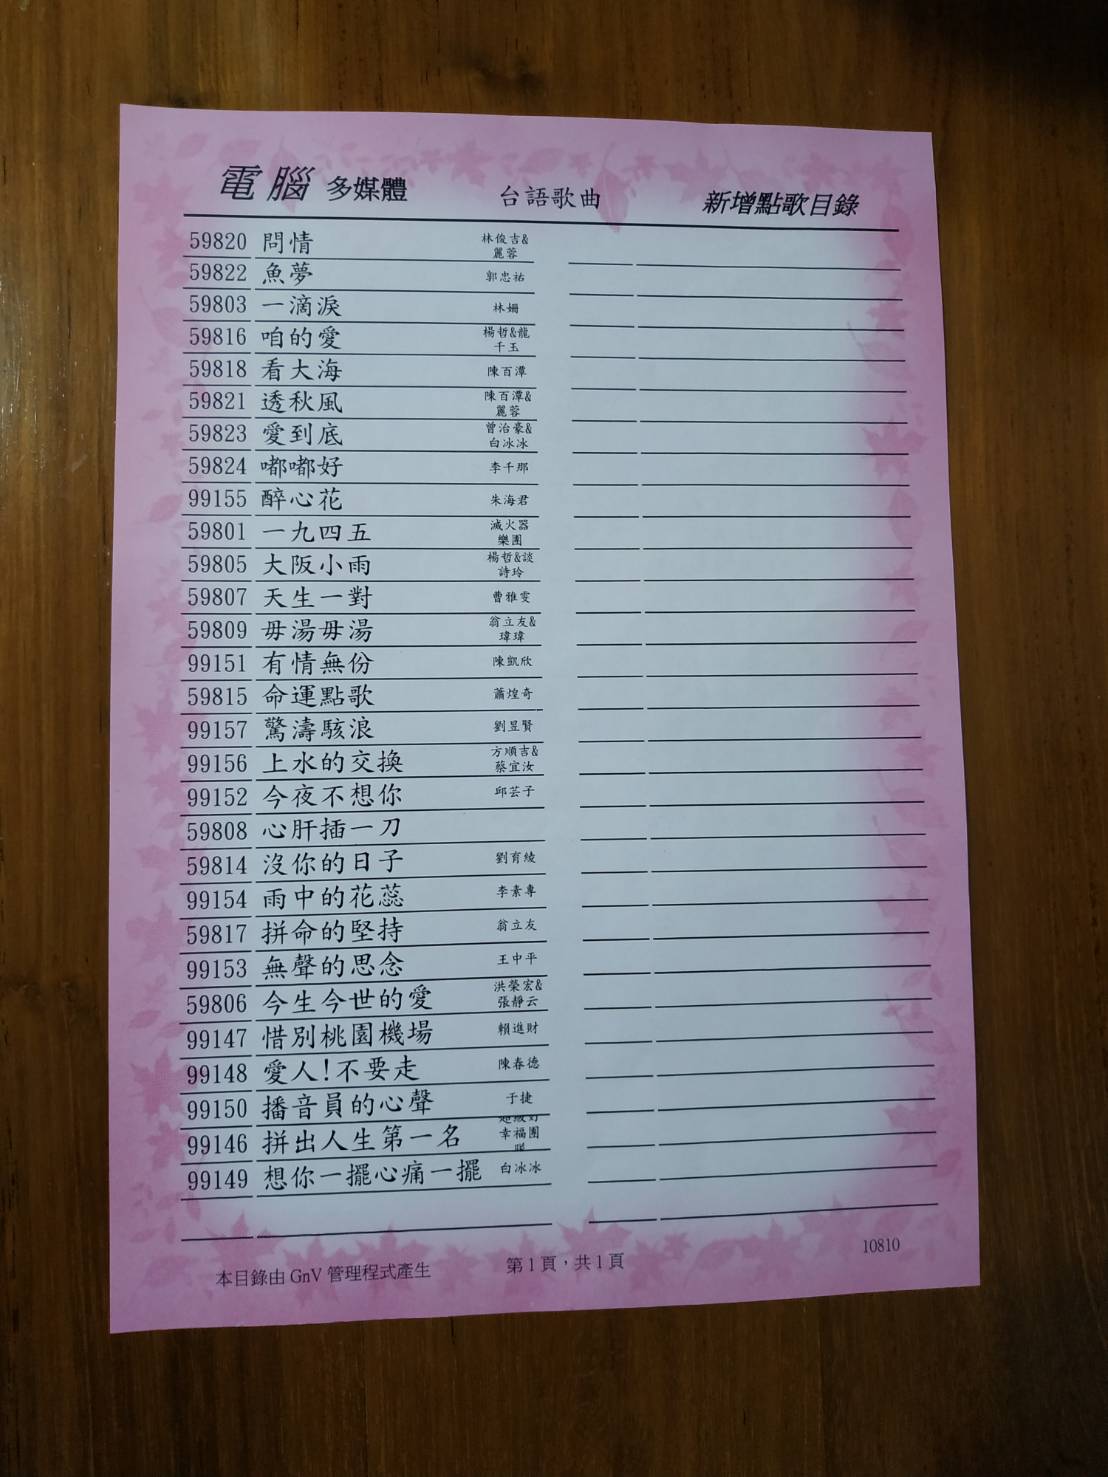 電腦 多媒體 台語歌曲 新增點歌目錄
59820 問情 林俊吉&
麗蓉
59822 魚夢 郭忠祐
59803 一滴淚 林姍
59816 咱的愛 楊哲&龍
千玉
59818 看大海 陳百潭
59821 透秋風 陳百潭&
麗蓉
59823 愛到底 曾治豪&
白冰冰
59824 嘟嘟好 李千那
99155 醉心花 朱海君
59801 一九四五 滅火器
樂團
59805 大阪小雨 楊哲&談
詩玲
59807 天生一對 曹雅雯
59809 毋湯毋湯 翁立友&
瑋瑋
99151 有情無份 陳凱欣
59815 命運點歌 蕭煌奇
99157 驚濤駭浪 劉昱賢
99156 上水的交換 方順吉&
蔡宜汝
99152 今夜不想你 邱芸子
59808 心肝插一刀
59814 沒你的日子 劉育綾
99154 雨中的花蕊 李素專
59817 拼命的堅持 翁立友
99153 無聲的思念 王中平
59806 今生今世的愛 洪榮宏&
張靜云
99147 惜別桃園機場 賴進財
99148 愛人!不要走 陳春德
99150 播音員的心聲 于捷
99146 拼出人生第一名 幸福團
99149 想你一擺心痛一擺 白冰冰
本目錄由 GnV 管理程式產生 第1頁，共1頁 10810